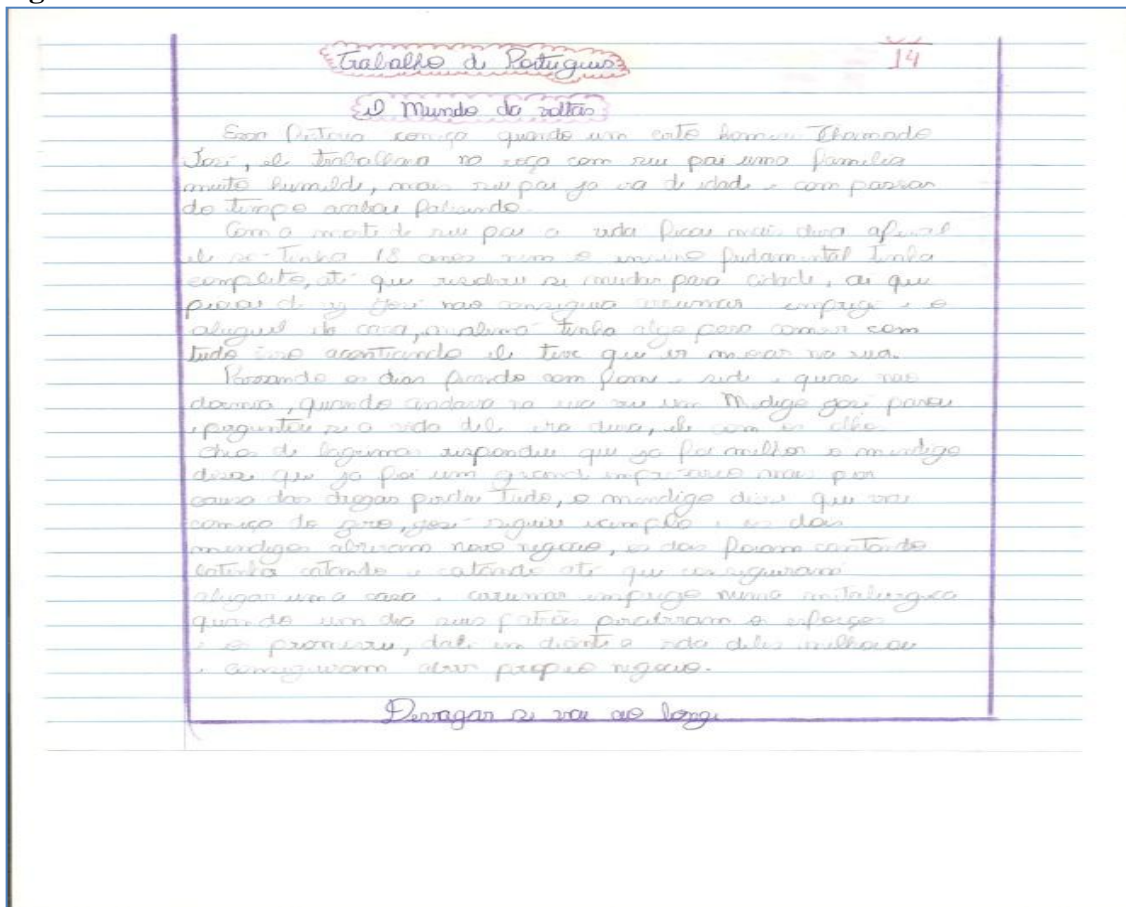 Trabalho de Portugues
14
O Mundo da voltas
Essa historia começa quando um certo homem Chamado
José, ele trabalhava na roça com seu pai uma familia
muito humilde, mais seu pai ja era de idade e com passar
do tempo
Com a morte de seu pai a vida ficou mais dura afinal
ele so tinha 18 anos nem o ensino fudamental tinha
completo, até que resolveu se mudar para cidade, as que
José nao conseguia arrumar emprego e o
aluguel da casa, tinha algo para comer com
tudo isso acontecendo ele teve que ir morar na rua.
Passando os dias ficando com fome e sede e quase nao
dormia, quando andava na rua viu um Mndigo José parou
e preguntou se a vida dele era dura, ele com os olho
cheio de lagrimas respondeu que ja foi melhor o mendigo
disse que ja foi um grande empresario mais por
causa das drogas perdeu tudo, o mendigo disse que vai
começa do zero, José seguiu exemplo e os dois
mendigos abriram novo negocio, os dois foram
latinha catando e catando até que conseguiram
alugar uma casa e arrumar emprego numa metalurgica
quando um dia seus patrões o esforço
e o promoveu, dali em diante a vida deles melhorou
e conseguiram abrir propio negocio.
Devagar se vai ao longe